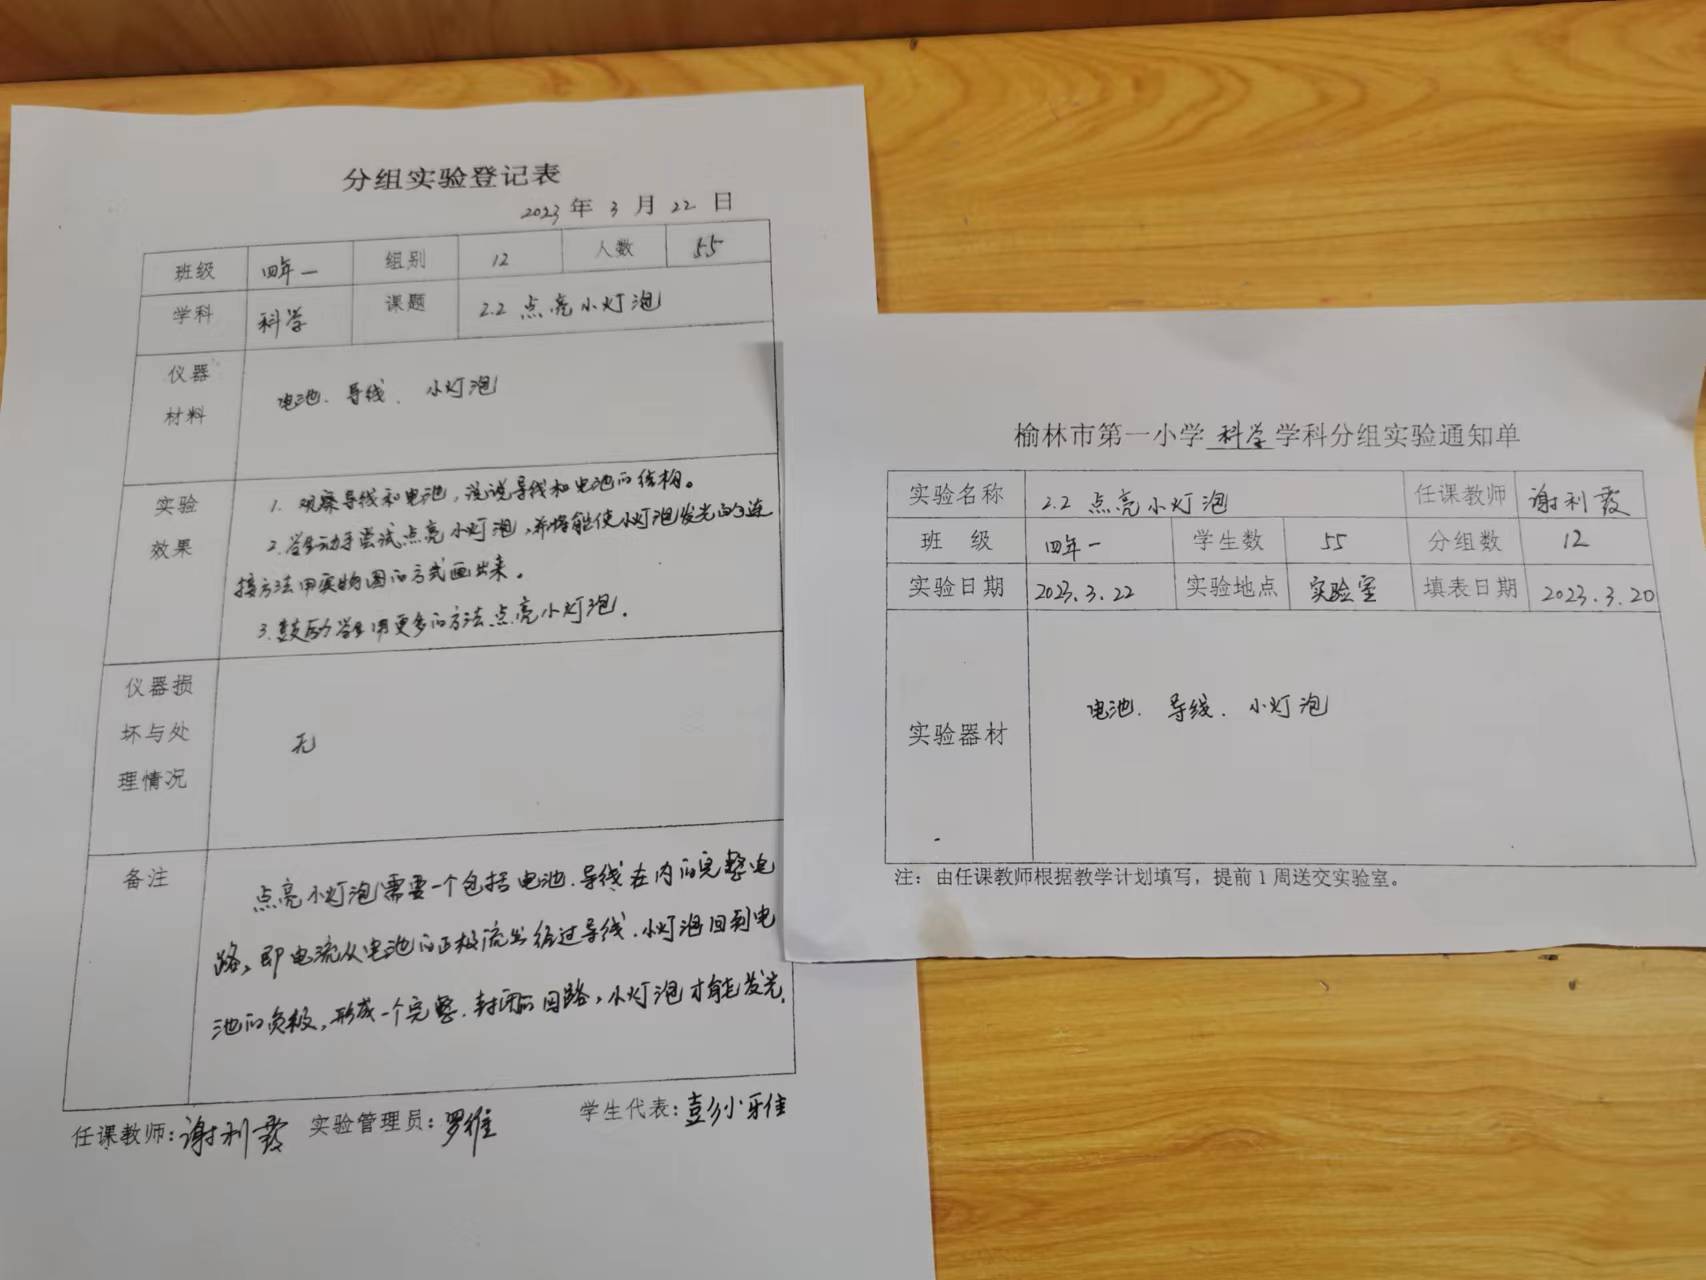 分组实验登记表
2023 年 3 月 22 日
班级 四年一 组别 12 人数 55
学科 科学 课题 2.2 点亮小灯泡
仪器
材料
电池、导线、小灯泡
实验
效果
1. 观察导线和电池，说说导线和电池的结构。
2. 学生动手尝试点亮小灯泡，并将能使小灯泡发光的连
接方法用实物图的方式画出来。
3. 鼓励学生用更多的方法点亮小灯泡.
仪器损
坏与处
理情况
无
备注
点亮小灯泡需要一个包括电池、导线在内的完整电
路，即电流从电池的正极流出经过导线、小灯泡回到电
池的负极，形成一个完整、封闭的回路，小灯泡才能发光.
任课教师: 谢利霞 实验管理员: 罗维 学生代表: 彭小雅
榆林市第一小学 科学 学科分组实验通知单
实验名称 2.2 点亮小灯泡 任课教师 谢利霞
班 级 四年一 学生数 55 分组数 12
实验日期 2023.3.22 实验地点 实验室 填表日期 2023.3.20
实验器材 电池、导线、小灯泡
注：由任课教师根据教学计划填写，提前 1 周送交实验室。